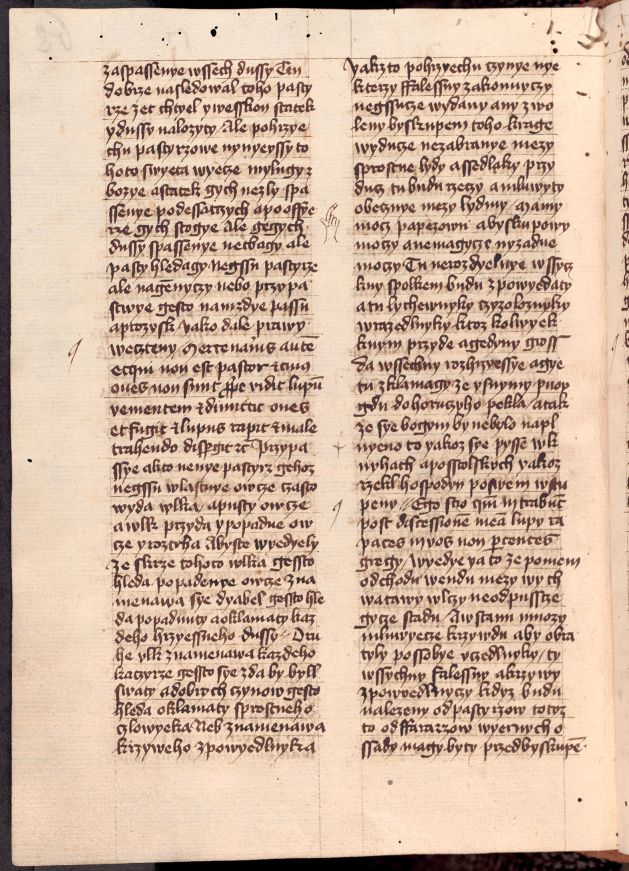 zaspassenye wssech dussy Ten
dobrze nasledowal toho pasty
rze zet chtyel ywesskon statek
ydussy nalozyty Ale pohrzye
chu pastyrzowe nynyeyssy to
hoto swyeta wyecze mylugy z
bozye astatek gych nezly spa
ssenye podessaczych apoossye
rze gych stogye Ale gegych
dussy spassenye netbagy ale
pasty hledagy Negssu pastyrze
ale nagenyczy nebo przypa
stwye gesto namzdye passu
Jako dale prawy
Mercenarius autem
et qui non est pastor cuius
oues non sunt proprie vidit lupum
venientem et dimittit oues
et fugit et lupus rapit et male
trahendo dispergit etc Przypa
ssye akto nenye pastyrz gehoz
negssu wlastnye owcze czasto
wyda wlka apusty owcze
awlk przyda ypopadne ow
cze yroztrha Abyste wyedyely
ze skrze tohoto wlka gessto
hleda popadenye owcze zna
menawa sye dyabel gessto hle
da popadnuty aoklamaty kaz
deho hrzyessneho dussy Dru
he wlk znamenawa kazdeho
kaczyrze gessto sye zda by byl
swaty adobrych czynow gesto
hleda oklamaty sprostneho
czlowyeka Neb znamenawa
krzyweho zpowyedlnyka
yakzto pohrzyechu czynye nye
kterzy ffalessny zakonnyczy
negssucze wydany any zwo
leny byskupem toho krage
wyducze nezabranye mezy
sprostne lydy assedlaky przy
duz tu budu rzeczy amluwyty
obecznye mezy lydmy Mamy
mocz papezowu abyskupowy
moczy anemagycze nyzadne
moczy Tu nerozdyelnye wssyc
kny spolkem budu zpowyedaty
atu lychewnyky czyzoloznyky
wrazedlnyky ktoz kolwyek
knym przyde agedyny gross
da wssechny rozhrzyessye agye
tu zklamagy ze ysnymy puog
gdu dohoruczyho pekla atak
ze sye bogym by nebylo napl
nyeno to yakoz sye pysse wk
nyhach apossstolskych yakoz
rzekl hospodyn
Ego scio quoniam intrabunt
post discessione mea lupy ra
paces in vos non parcentes
gregy Wyedye ya to ze pomem
odchodu wendu mezy wy ch
watawy wlczy neodpusscze
gycze stadu Awstanu mnozy
mluwyecze krzywdu aby obra
tyly possobye uczedlnyky ty
wssychny falessny akrzywy
zpowyedlnyczy kdyz budu
nalezeny odpastyrzow totoz
to odffararzow wyernych o
ssady magy byty przedbyskupem